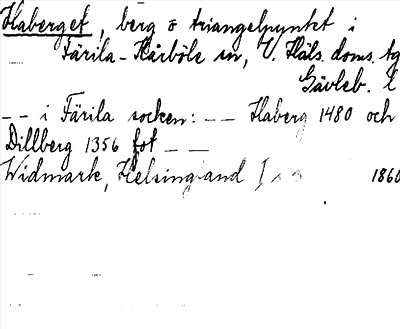 Haberget, berg o triangelpunkt i
Färila-Kårböle sn, V. Häls. doms. tg
Gävleb. l
-- i Färila socken: -- Haberg 1480 och
Dillberg 1356 fot --
Widmark, Helsingland I 1860